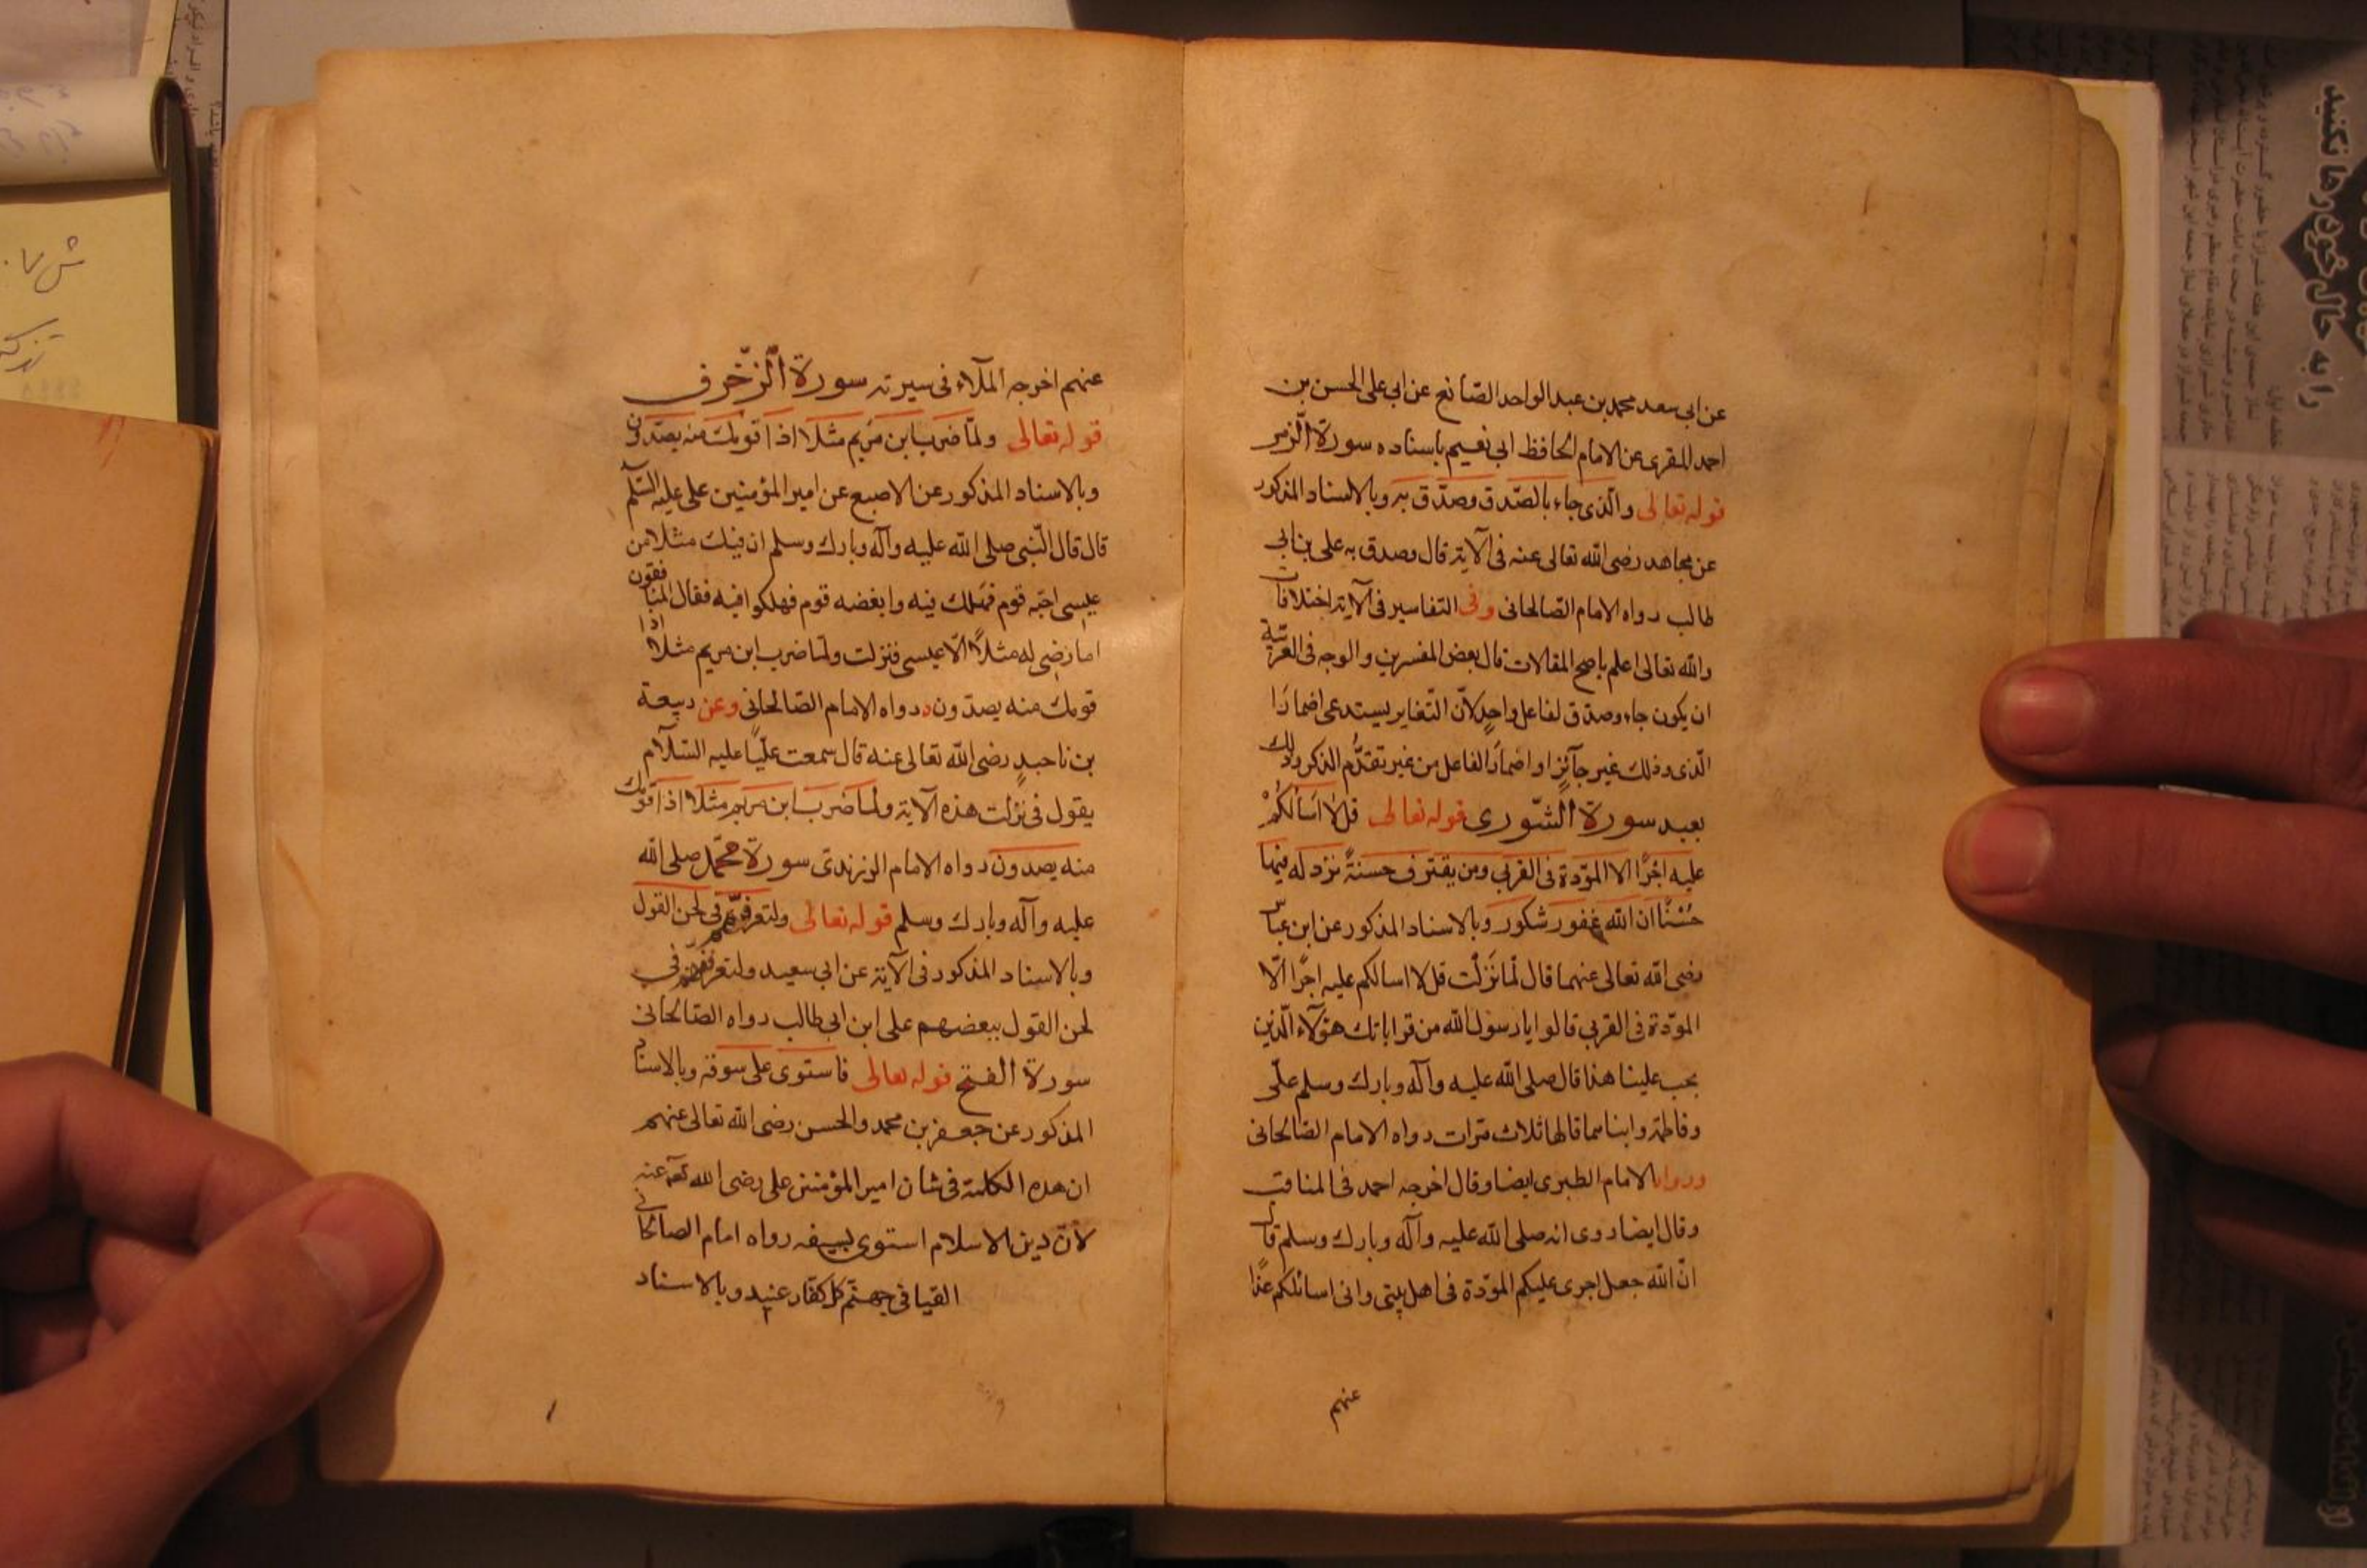 عن ابى سعد محمد بن عبد الواحد الصّائغ عن ابى على الحسن بن
احمد المقرى عن الامام الحافظ ابى نعيم باسناده سورة الزّمر
قوله تعالى والّذى جاء بالصّدق وصدّق به وبالاسناد المذكور
عن مجاهد رضى الله تعالى عنه فى الآية قال وصدق به على بن ابى
طالب رواه الامام الصّالحانى وفى التفاسير فى الآية اختلافات
والله تعالى اعلم باصح المقالات قال بعض المفسرين والوجه فى العربية
ان يكون جاء وصدّق لفاعل واحدٍ لانّ التّغاير يستدعى اضمارَ
الّذى وذلك غير جآئزٍ او اضمارَ الفاعل من غير تقدُّم الذكر وذلك
بعيد سورة الشّورى قوله تعالى قل لا اَسْاَلُكُمْ
عليه اجرًا الا المودّة فى القربى ومن يقترف حسنةً نزد له فيها
حُسْنًا ان الله غفور شكور وبالاسناد المذكور عن ابن عباس
رضى الله تعالى عنهما قال لمّا نَزَلَتْ قل لا اسالكم عليه اجرًا الّا
المودّة فى القربى قالوا يا رسول الله من قراباتك هؤلآء الّذين
يجب علينا هذا قال صلى الله عليه وآله وبارك وسلم علّى
وفاطمة وابناهما قالها ثلاث مرّات رواه الامام الصّالحانى
ورواه الامام الطبرى ايضا وقال اخرجه احمد فى المناقب
وقال ايضا روى انه صلى الله عليه وآله وبارك وسلم قال
انّ الله جعل اجرى عليكم المودّة فى اهل بيتى وانى اسائلكم غدًا
عنهم
عنهم اخرجه الملّاء فى سيرته سورة الزّخرف
قوله تعالى ولمّا ضرب ابن مَريم مثلا اذا قومك منه يصدّون
وبالاسناد المذكور عن الاصبع عن امير المؤمنين على عليه السّلم
قال قال النّبى صلى الله عليه وآله وبارك وسلم ان فيك مثلا من
عيسى احبّه قوم فهلك فيه وابغضه قوم فهلكوا فيه فقال المنافقون
اما رضى له مثلًا الّا عيسى فنزلت ولمّا ضرب ابن مريم مثلا اذا
قومك منه يصدّون رواه الامام الصّالحانى وعن ربيعة
بن ناجدٍ رضى الله تعالى عنه قال سمعت عليّا عليه السّلام
يقول فى نزلت هذه الآية ولما ضرب ابن مريم مثلا اذا قومك
منه يصدون رواه الامام الزرندى سورة محمّد صلى الله
عليه وآله وبارك وسلم قوله تعالى ولتعرفنّهم فى لحن القول
وبالاسناد المذكور فى الآية عن ابى سعيد ولتعرفنهم فى
لحن القول ببعضهم على ابن ابى طالب رواه الصّالحانى
سورة الفتح قوله تعالى فاستوى على سوقه وبالاسناد
المذكور عن جعفر بن محمد والحسن رضى الله تعالى عنهم
ان هذه الكلمة فى شان امير المؤمنين على رضى الله تعالى عنه
لانّ دين الاسلام استوى بسيفه رواه امام الصالحانى
القيا فى جهنّم كل كفّار عنيد وبالاسناد
را به حال خود رها نكنيد